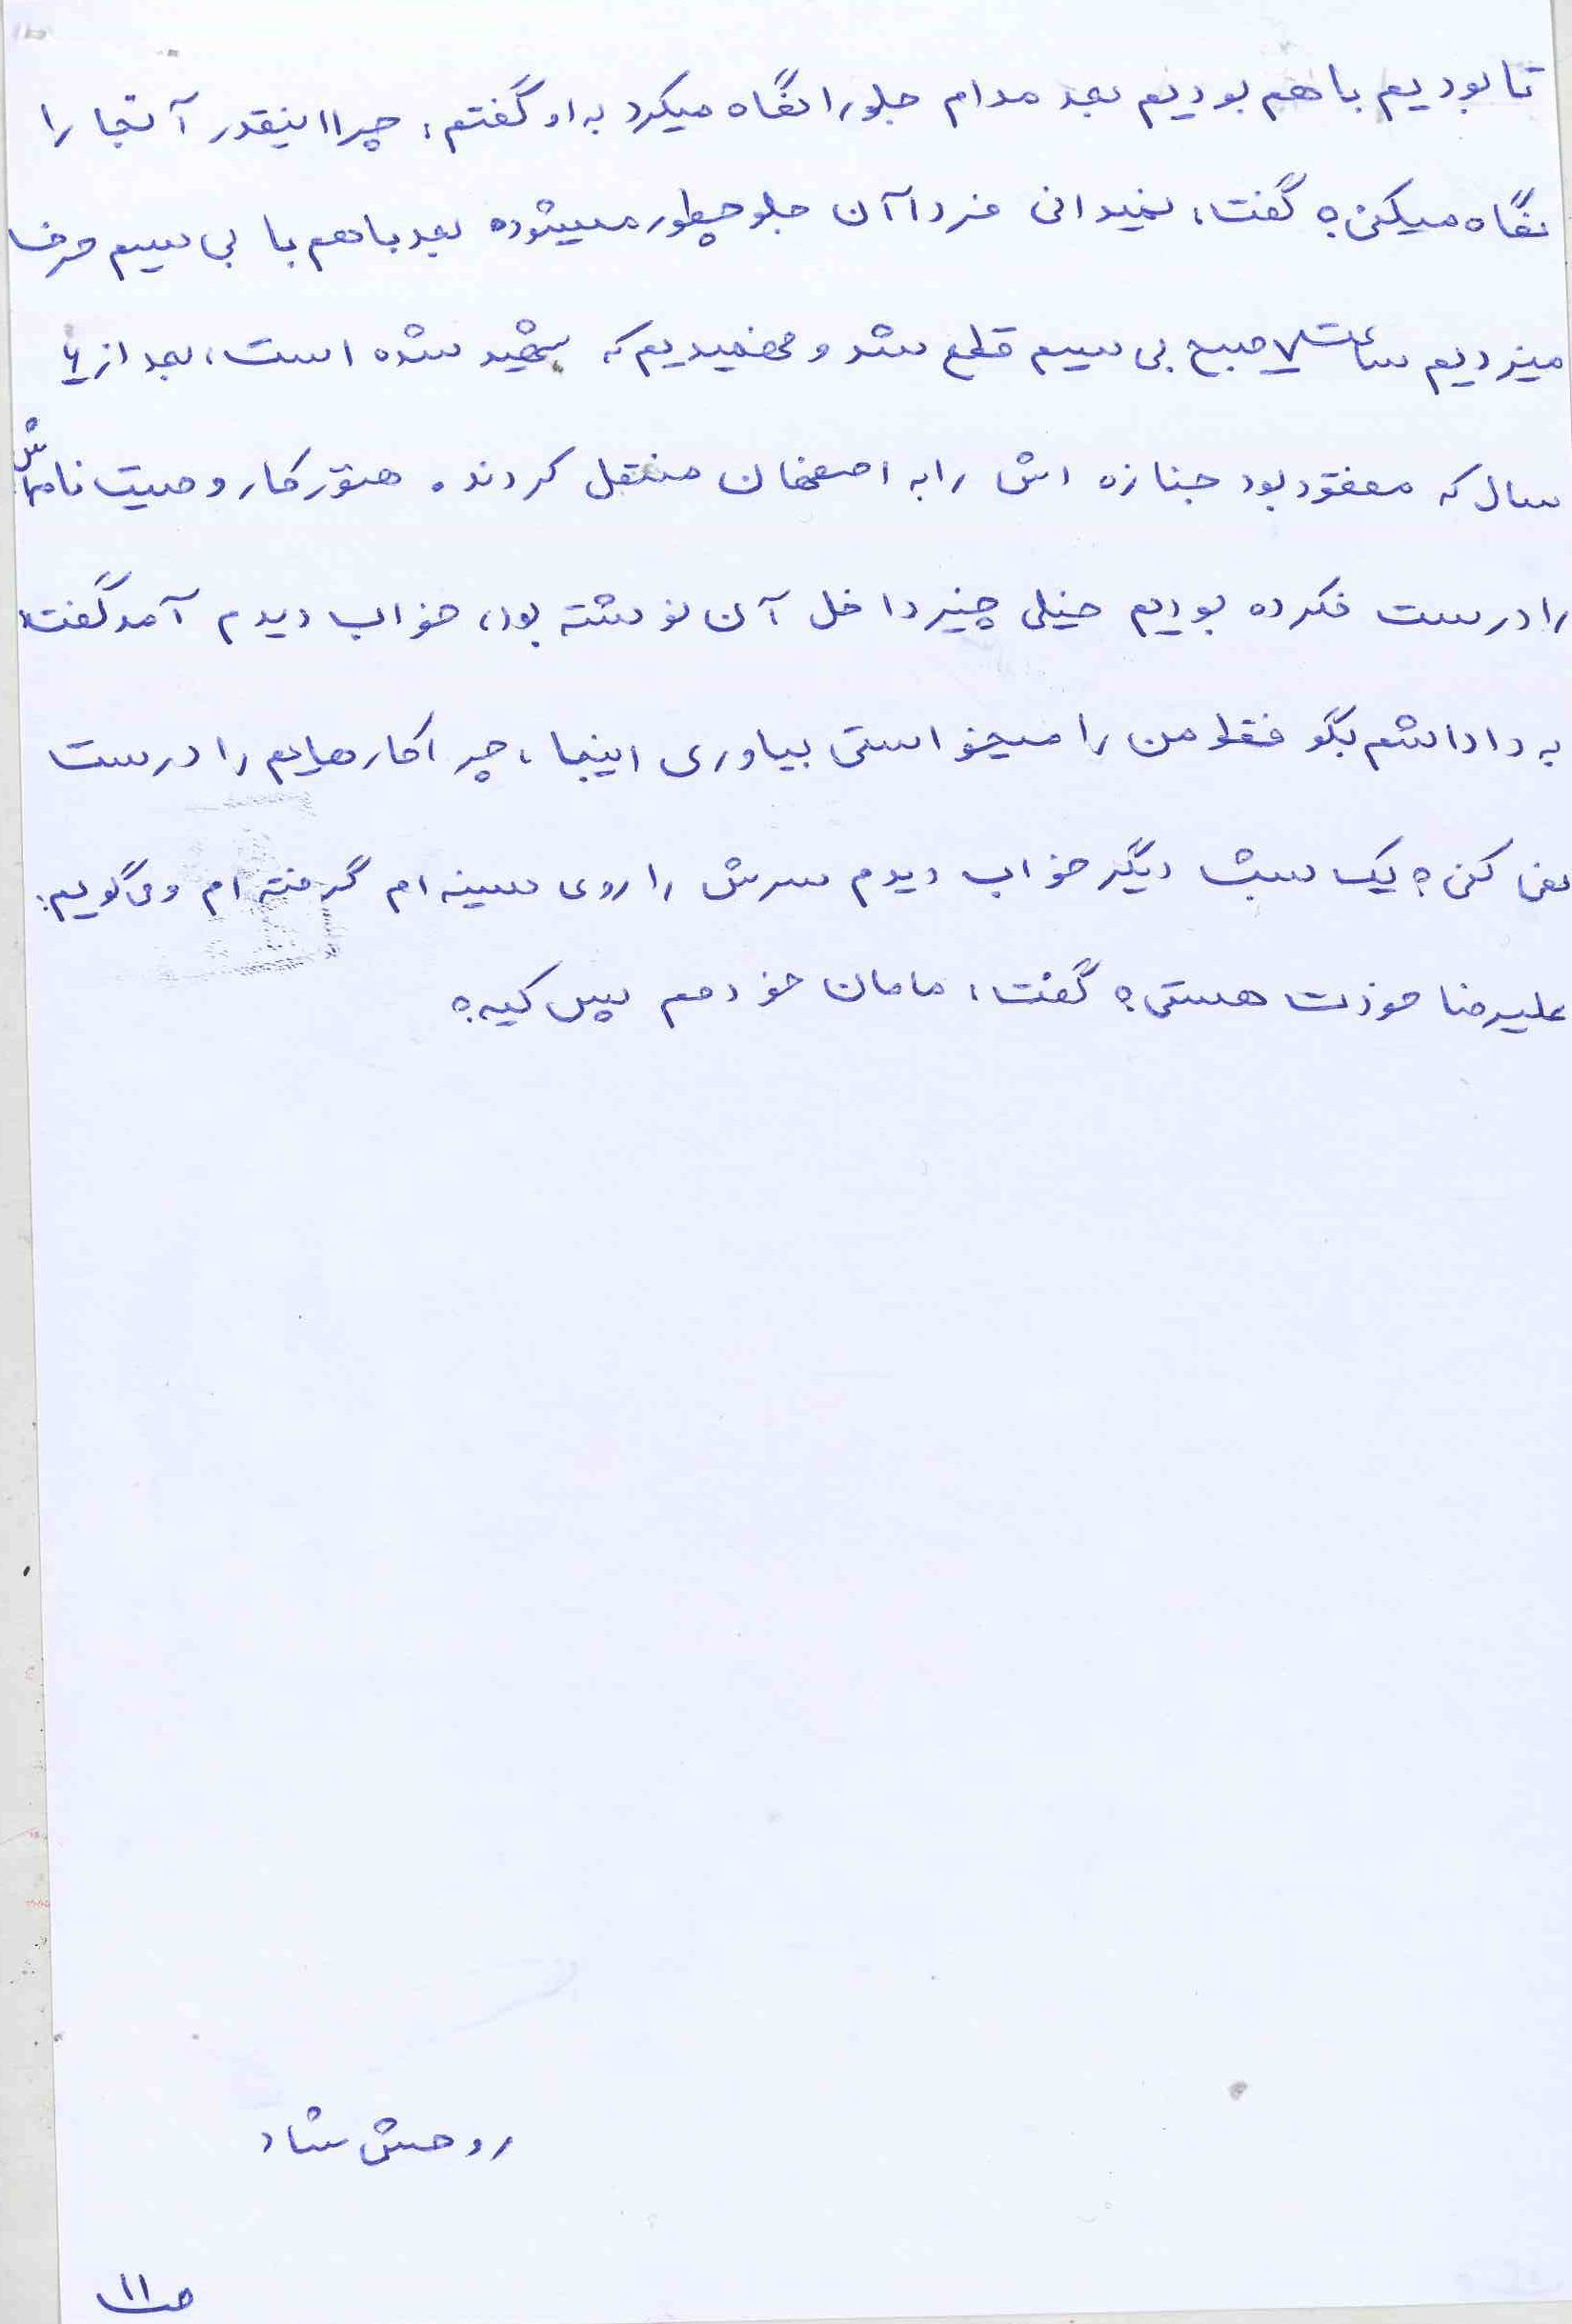 تا بودیم با هم بودیم بعد مدام جلو را نگاه میکرد به او گفتم: چرا اینقدر آنجا را
نگاه میکنی؟ گفت: نمیدانی فردا آن جلو چطور میشوده بعد با هم با بی سیم حرف
میزدیم ساعت ۷ صبح بی سیم قطع شد و فهمیدیم که شهید شده است، بعد از
سال که مفقود بود جنازه اش را به اصفهان منتقل کردند. هنوز کار وصیت نامه‌اش
را درست نکرده بودیم خیلی چیز داخل آن نوشته بود، خواب دیدم آمد گفت:
به داداشم بگو فقط من را میخواستی بیاوری اینجا، چرا کارهایم را درست
نمی کنی؟ یک شب دیگر خواب دیدم سرش را روی سینه ام گرفته ام و می‌گویم:
علیرضا خودت هستی؟ گفت: مامان خودمم پس کیه؟
روحش شاد
ص ۱۱